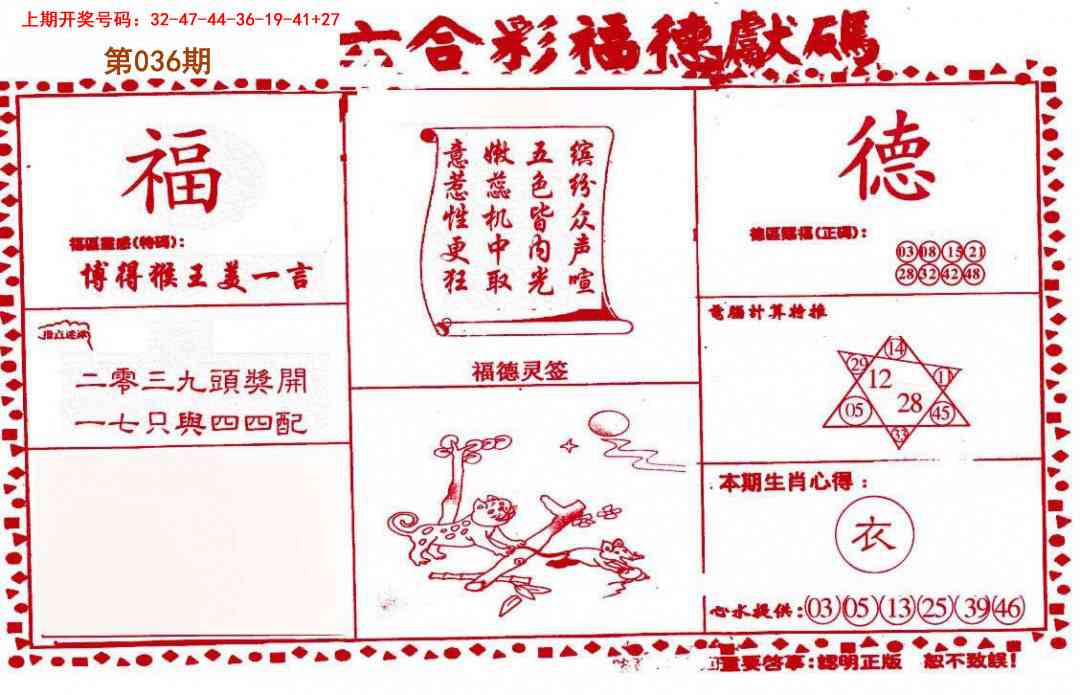 上期开奖号码：32-47-44-36-19-41+27
第036期
六合彩福德獻碼
福
福區靈感(特碼)：
博得猴王美一言
二零三九頭獎開
一七只與四四配
缤纷众声喧
五色皆内光
嫩蕊机中取
意惹性更狂
福德灵签
德
德區賜福(正碼)：
03 08 15 21
28 32 42 48
電腦計算特推
14
29
11
12
28
05
45
33
本期生肖心得：
衣
心水提供：(03)(05)(13)(25)(39)(46)
重要啓事：認明正版 恕不致誤！